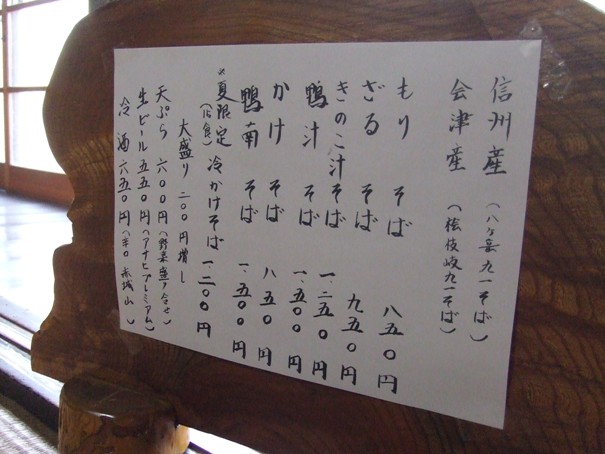 信州産（八ヶ岳九一そば）
会津産（桧枝岐九一そば）
もりそば 八五〇円
ざるそば 九五〇円
きのこ汁そば 一、二五〇円
鴨汁そば 一、五〇〇円
かけそば 八五〇円
鴨南そば 一、五〇〇円
※夏限定（10食）冷かけそば 一、二〇〇円
大盛り 二〇〇円増し
天ぷら 六〇〇円（野菜盛り合せ）
生ビール 五五〇円（アサヒプレミアム）
冷酒 六五〇円（辛口 赤城山）